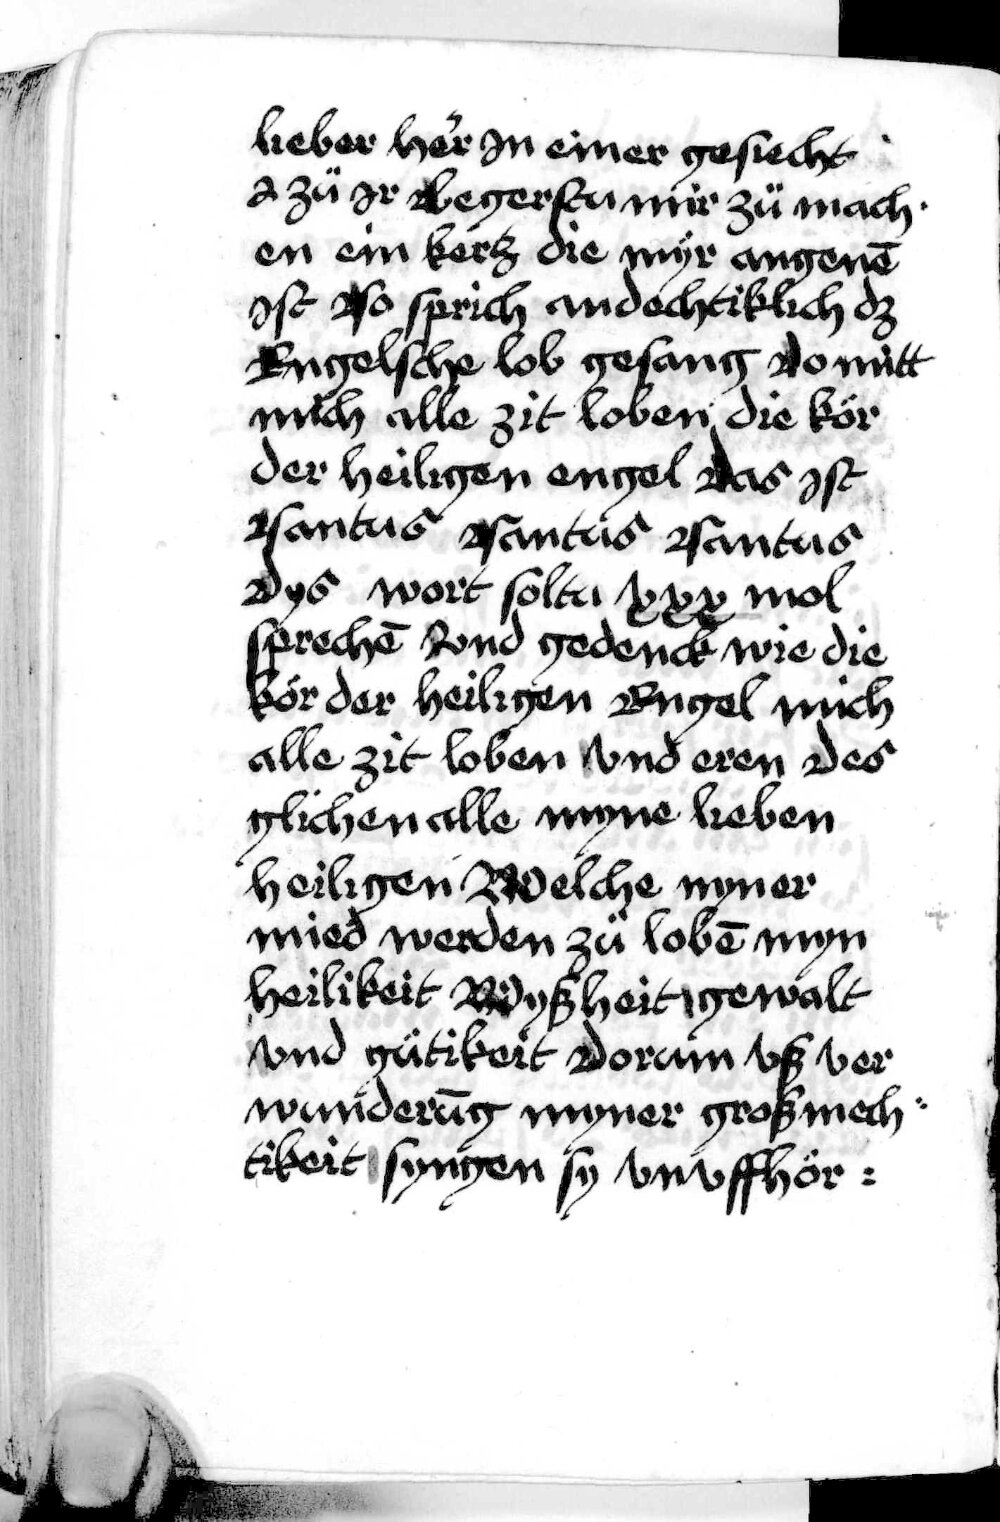 lieber her In einer gesiecht
zü Ir Begerstu mir zü mach·
en ein kertz die myr angenē
Ist So sprich andechtiklich dz
Engelsche lob gesang Do mitt
mich alle zit loben die kör
der heiligen engel Das Ist
Santus Santus Santus
Dys wort soltu xxx mol
sprechē Vnd gedenck wie die
kör der heiligen Engel mich
alle zit loben Vnd eren Des
glichen alle myne lieben
heiligen Welche nyner
mied werden zü lobē myn
heilikeit Wyßheit gewalt
vnd gütikeit Dorum vß ver
wunderūg myner großmech:
tikeit syngen sy vnvffhör :